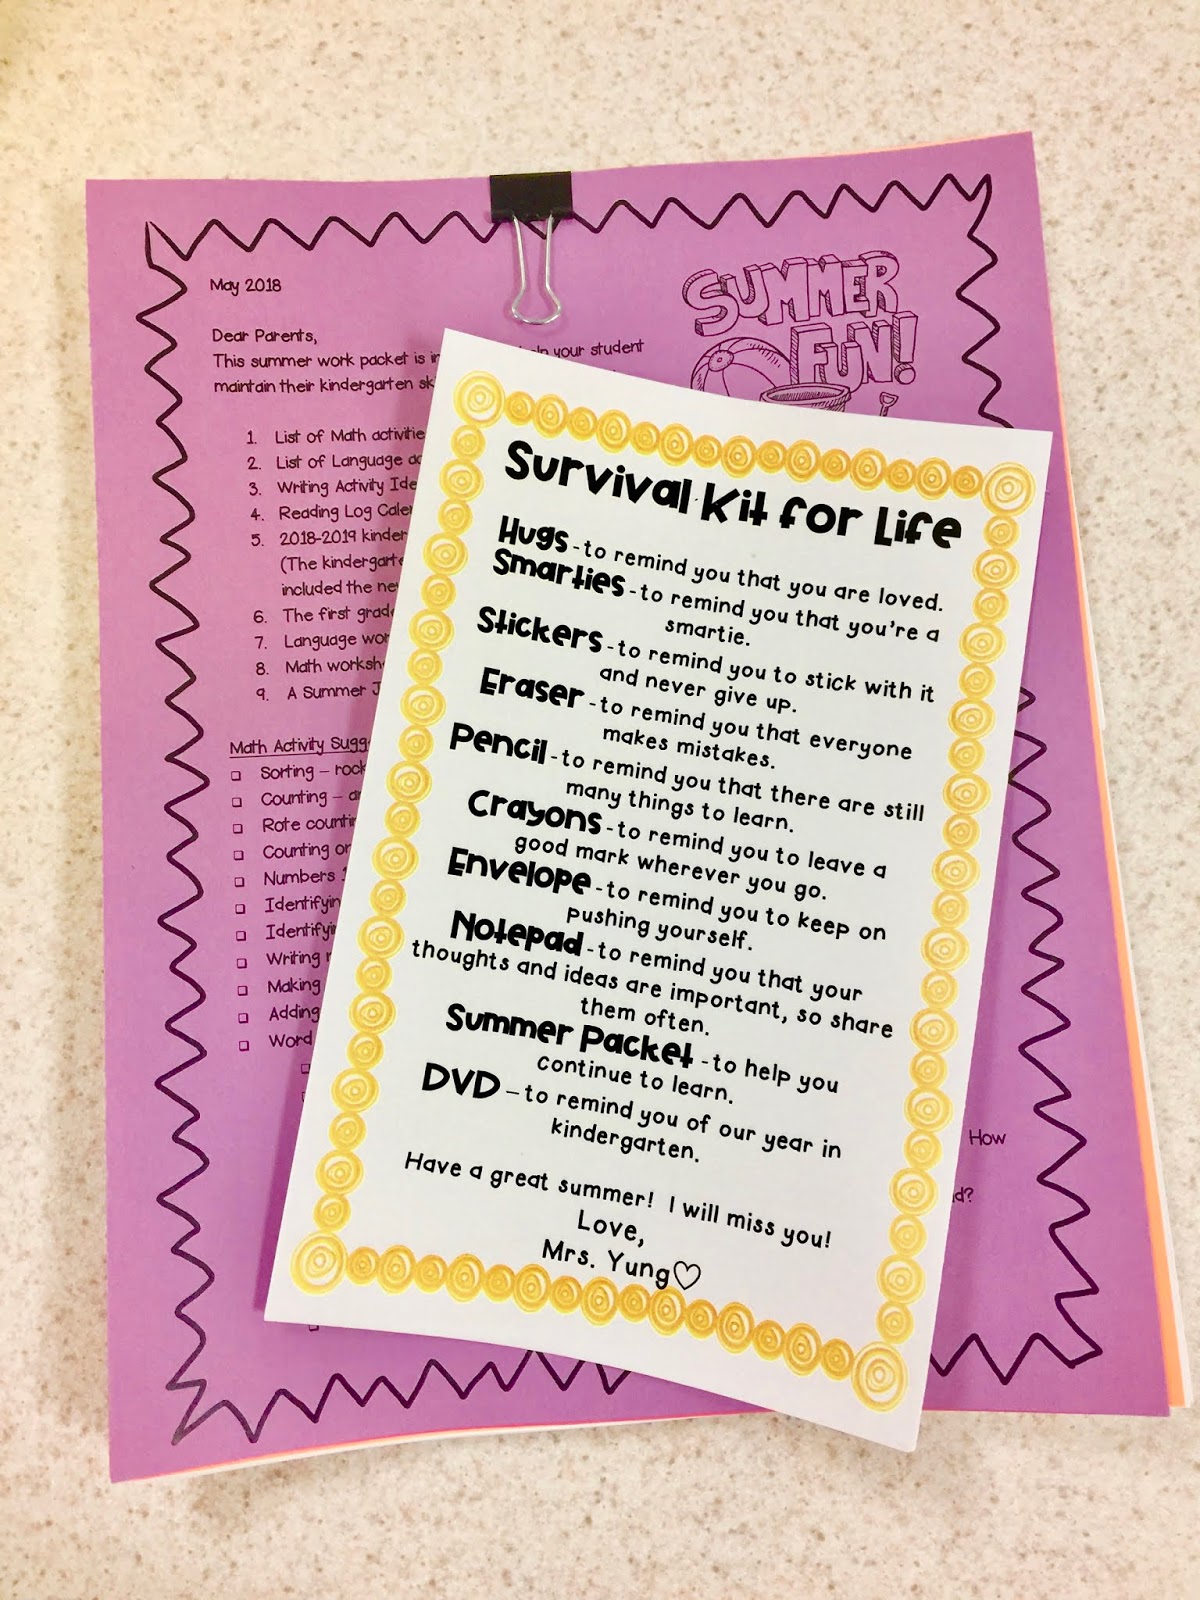 May 2018
SUMMER
FUN!
Dear Parents,
This summer work packet is your student
maintain their kindergarten
1. List of Math
2. List of Language
3. Writing Activity
4. Reading Log
5. 2018-2019
(The
included the
6. The first
7. Language
8. Math
9. A Summer
Math Activity
Sorting –
Counting –
Rote
Counting
Numbers
Writing
Making
Adding
Word
How
Survival Kit for Life
Hugs - to remind you that you are loved.
Smarties - to remind you that you're a
smartie.
Stickers - to remind you to stick with it
and never give up.
Eraser - to remind you that everyone
makes mistakes.
Pencil - to remind you that there are still
many things to learn.
Crayons - to remind you to leave a
good mark wherever you go.
Envelope - to remind you to keep on
pushing yourself.
Notepad - to remind you that your
thoughts and ideas are important, so share
them often.
Summer Packet - to help you
continue to learn.
DVD – to remind you of our year in
kindergarten.
Have a great summer! I will miss you!
Love,
Mrs. Yung♡